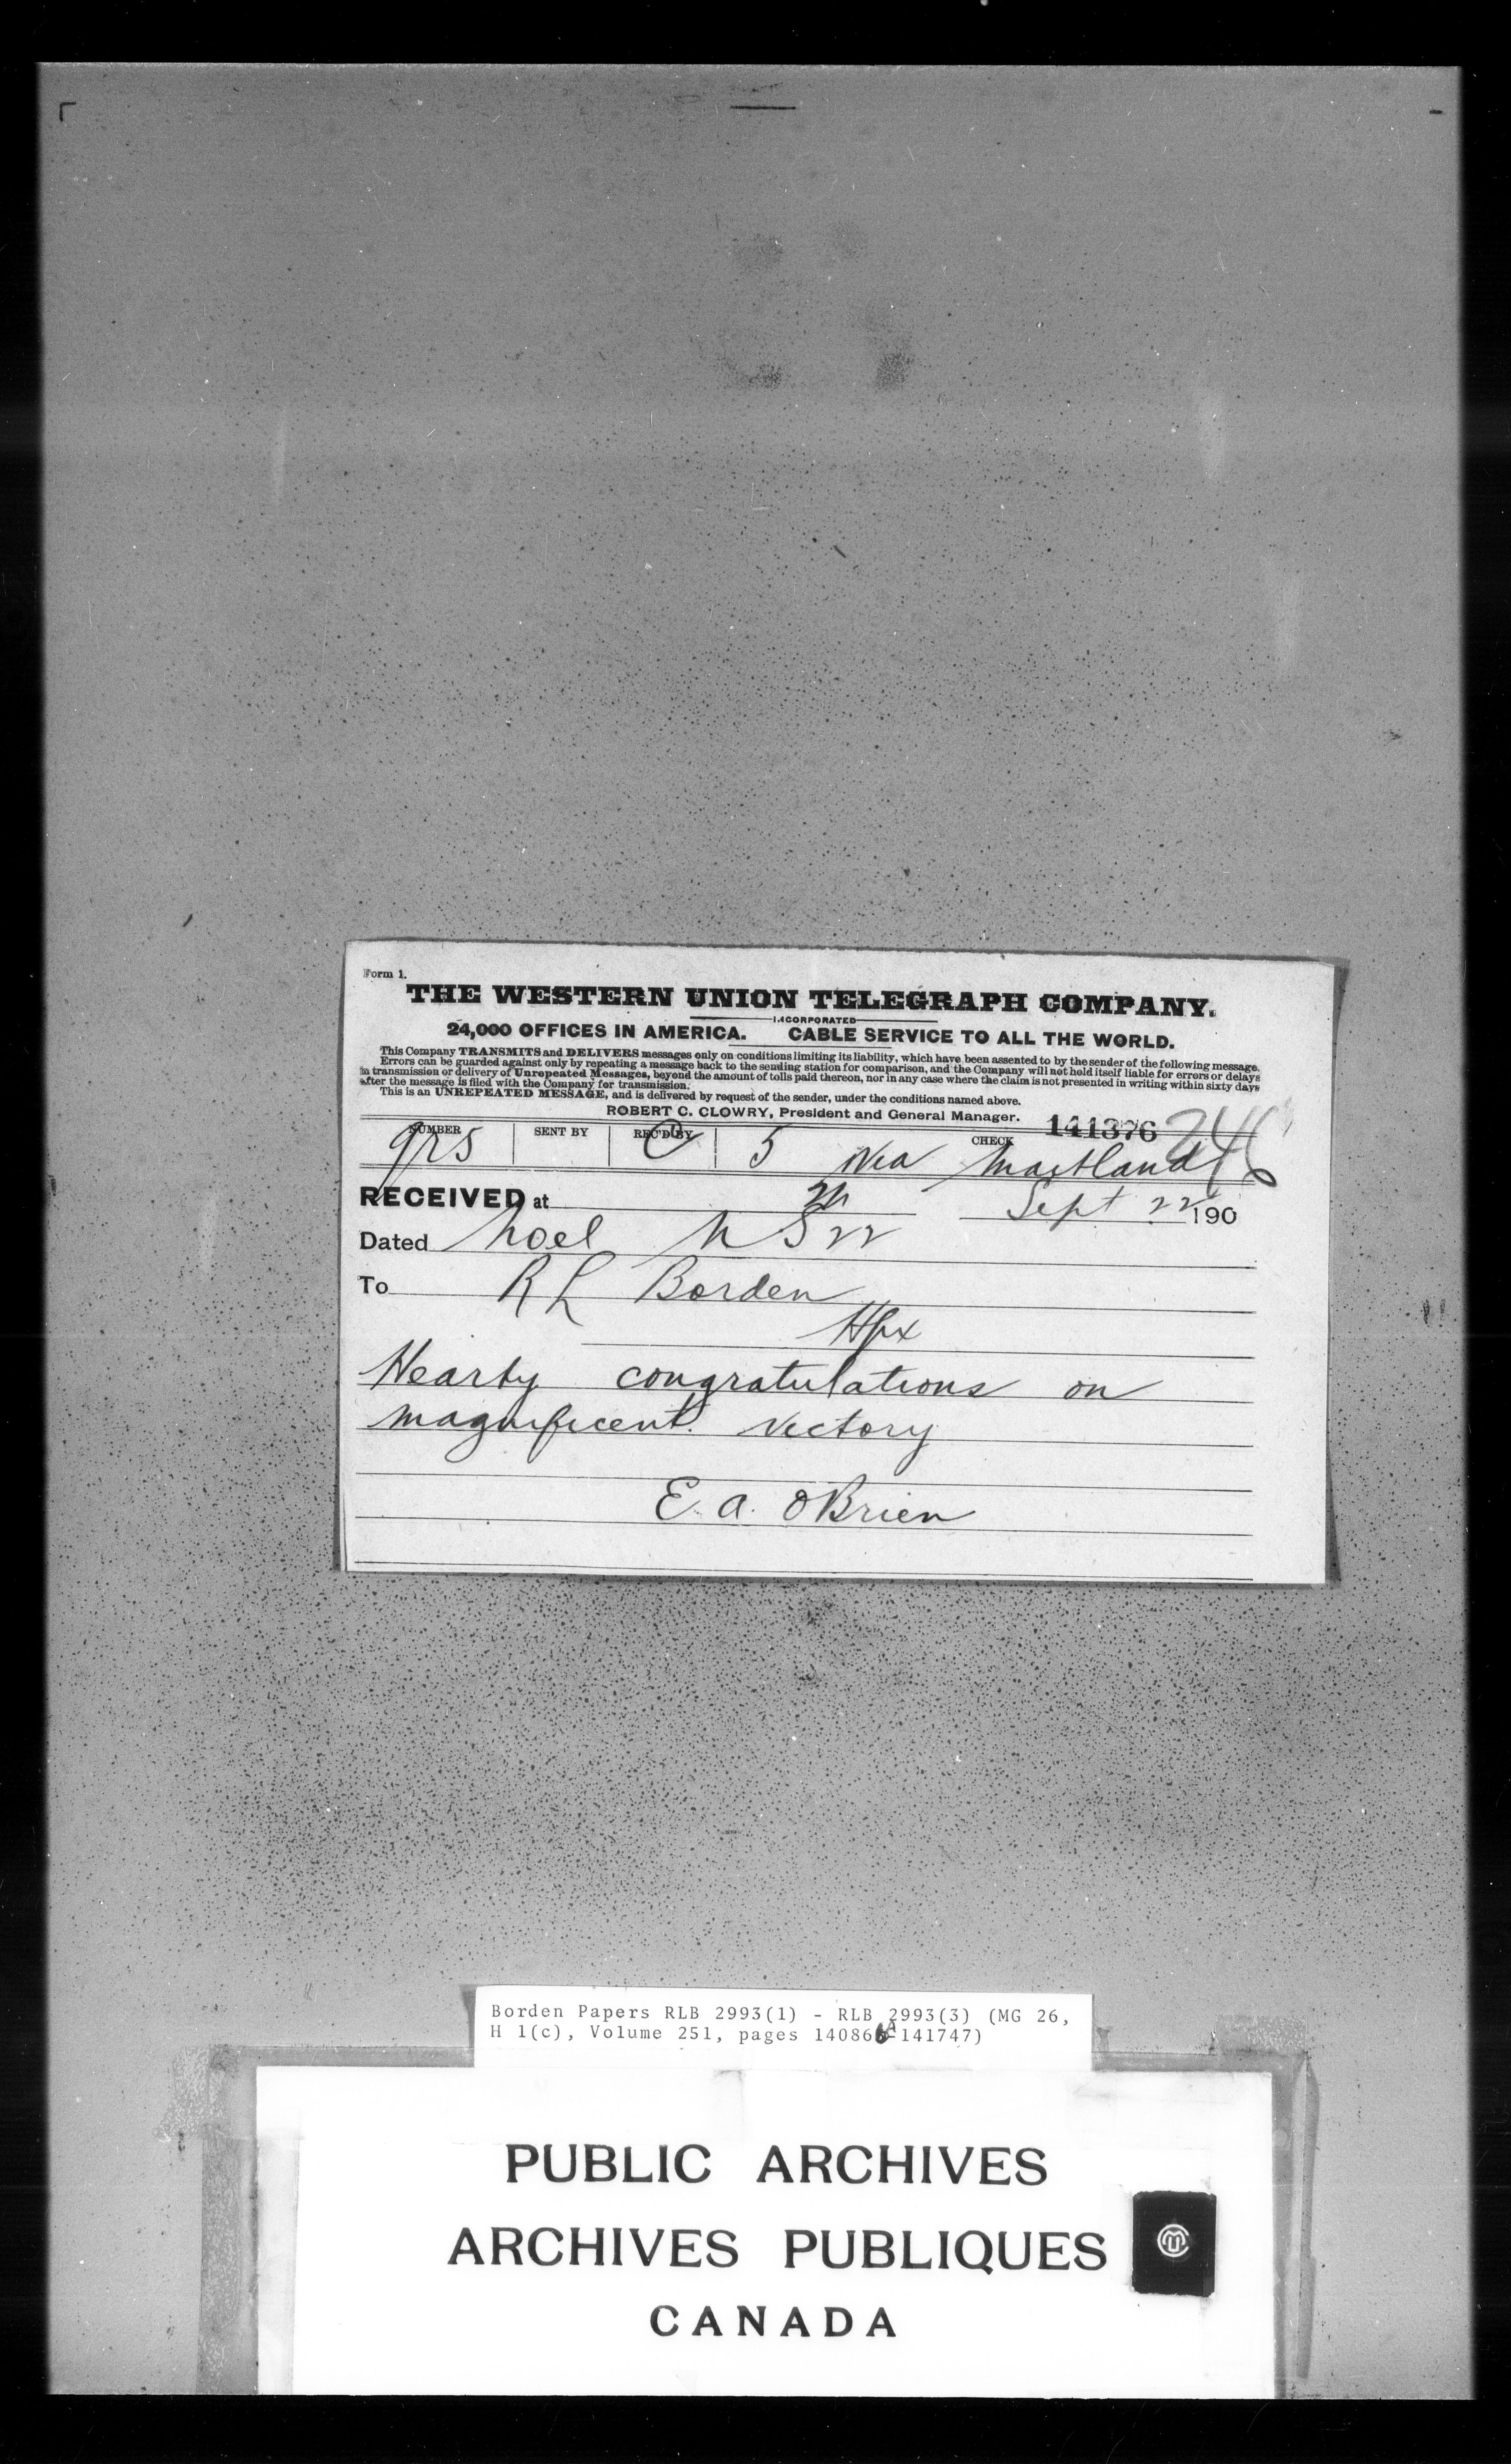 Form 1.
THE WESTERN UNION TELEGRAPH COMPANY.
INCORPORATED
24,000 OFFICES IN AMERICA. CABLE SERVICE TO ALL THE WORLD.
This Company TRANSMITS and DELIVERS messages only on conditions limiting its liability, which have been assented to by the sender of the following message.
Errors can be guarded against only by repeating a message back to the sending station for comparison, and the Company will not hold itself liable for errors or delays
in transmission or delivery of Unrepeated Messages, beyond the amount of tolls paid thereon, nor in any case where the claim is not presented in writing within sixty days
after the message is filed with the Company for transmission.
This is an UNREPEATED MESSAGE, and is delivered by request of the sender, under the conditions named above.
ROBERT C. CLOWRY, President and General Manager.
141376
NUMBER SENT BY REC'D BY CHECK
5 Via Maitland
RECEIVED at Sept 22 190
Dated Noel N S 22
To R L Borden
Hfx
Hearty congratulations on
magnificent victory
E. A. OBrien
Borden Papers RLB 2993(1) - RLB 2993(3) (MG 26,
H 1(c), Volume 251, pages 140866A-141747)
PUBLIC ARCHIVES
ARCHIVES PUBLIQUES
CANADA